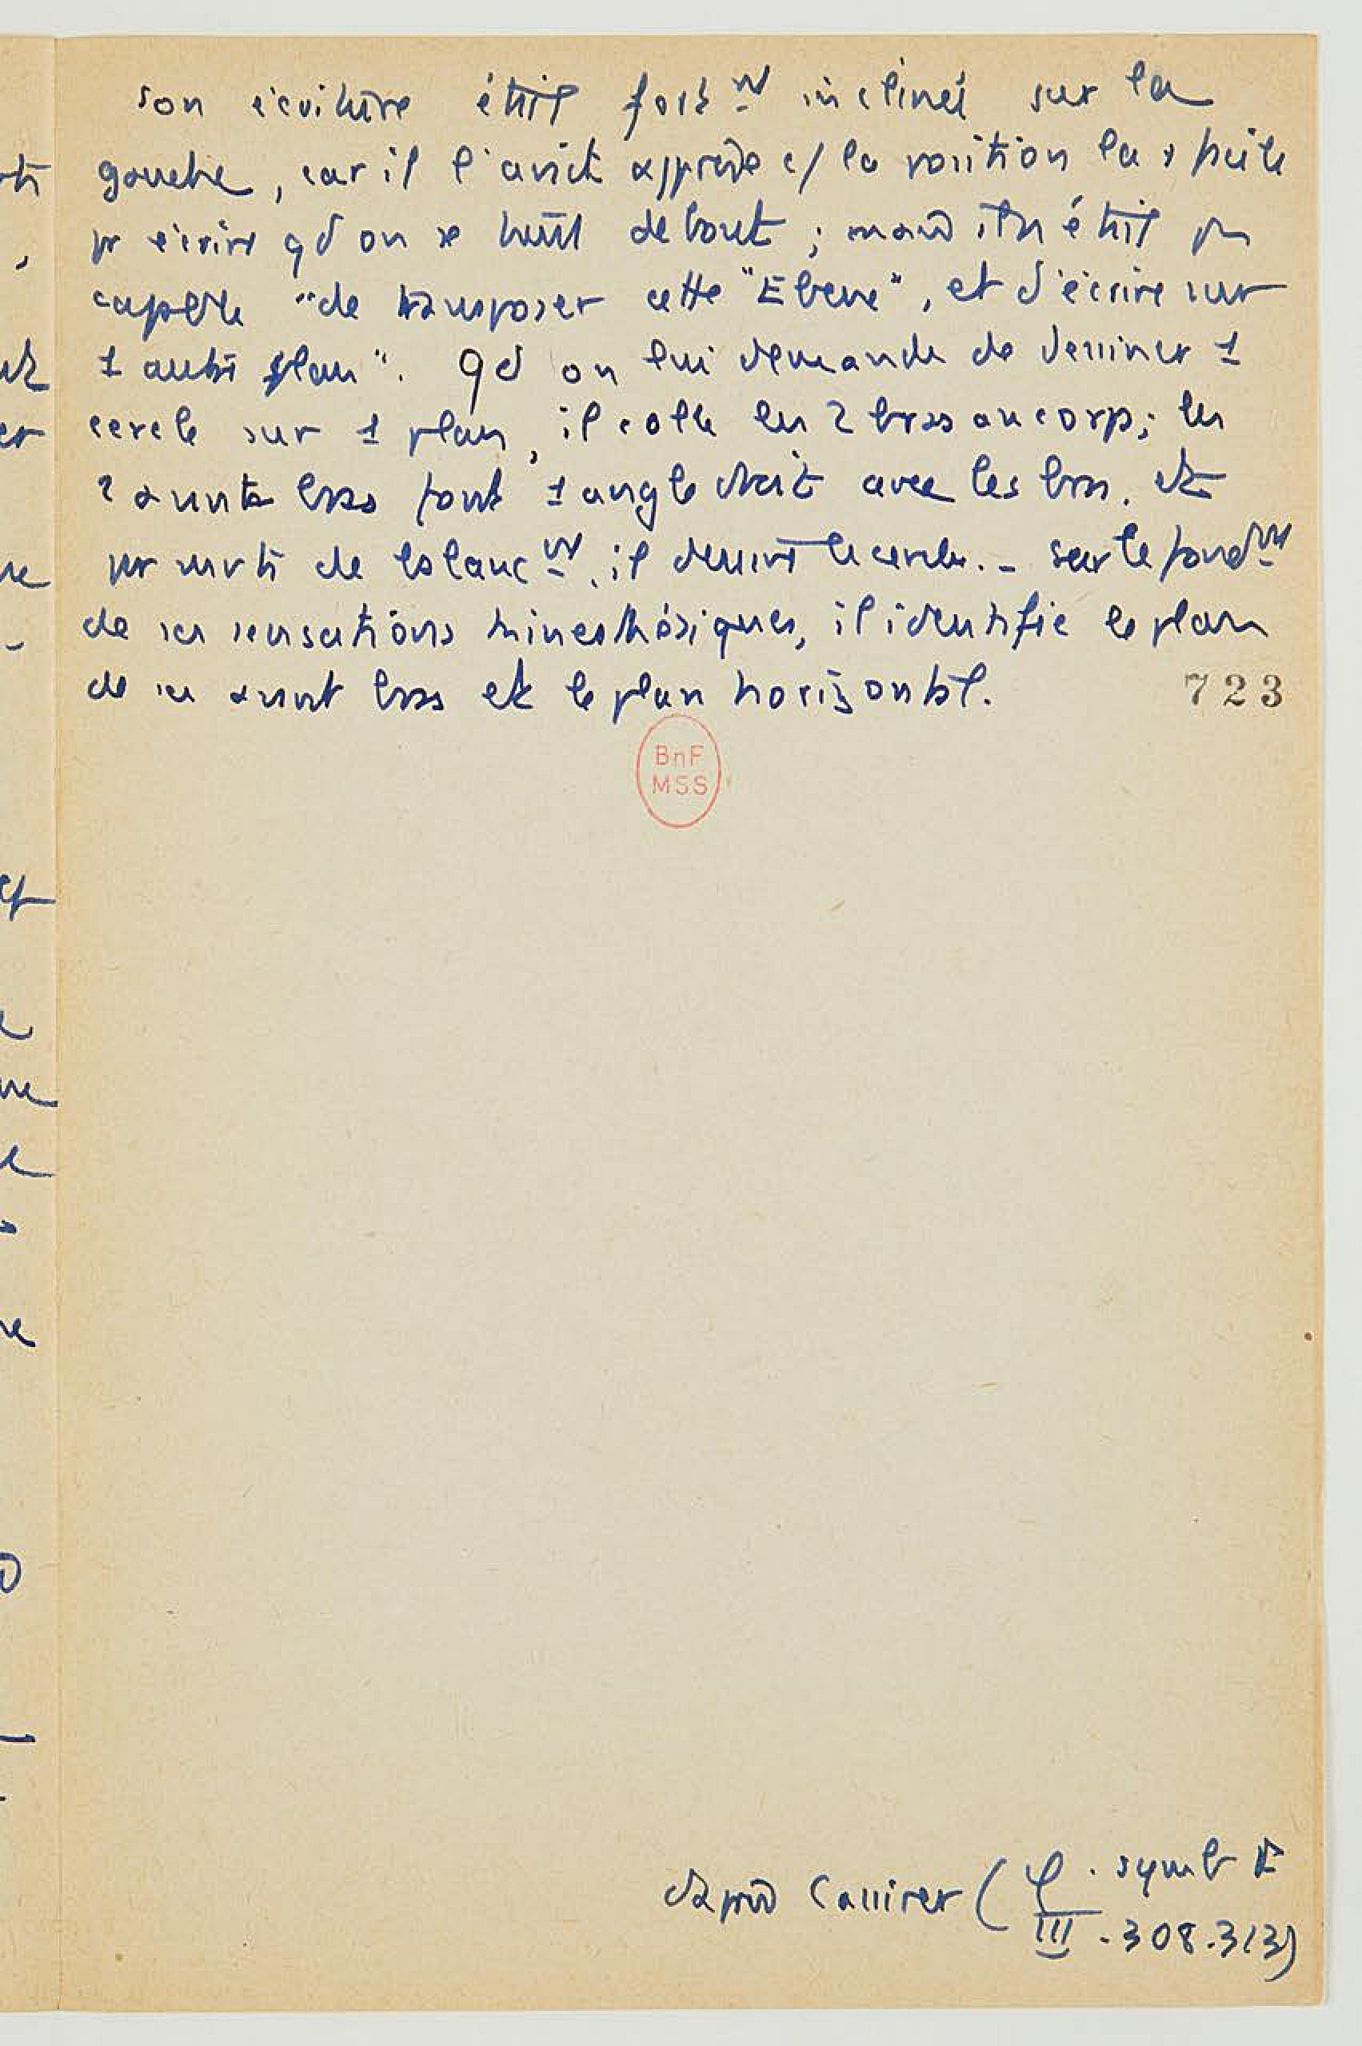 son écriture était fort^nt inclinée sur la
gauche, car il l'avait apprise c/ la position la + facile
pr écrire qd on se tient debout ; mais il n'était pas
capable "de transposer cette "Ebene", et d'écrire sur
1 autre plan". Qd on lui demande de dessiner 1
cercle sur 1 plan, il colle les 2 bras au corps; les
2 avants bras font 1 angle droit avec les bras. Et
par de balanc^nt, il dessine le cercle. - sur le fond^nt
de ses sensations kinesthésiques, il identifie le plan
de ses avant bras et le plan horizontal.
723
BnF
MSS
D'après Cassirer ( φ. symb
III - 308.313)